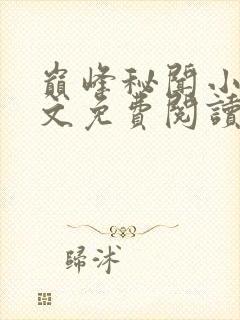 巔峰秘聞小
文免費閱讀
歸沭